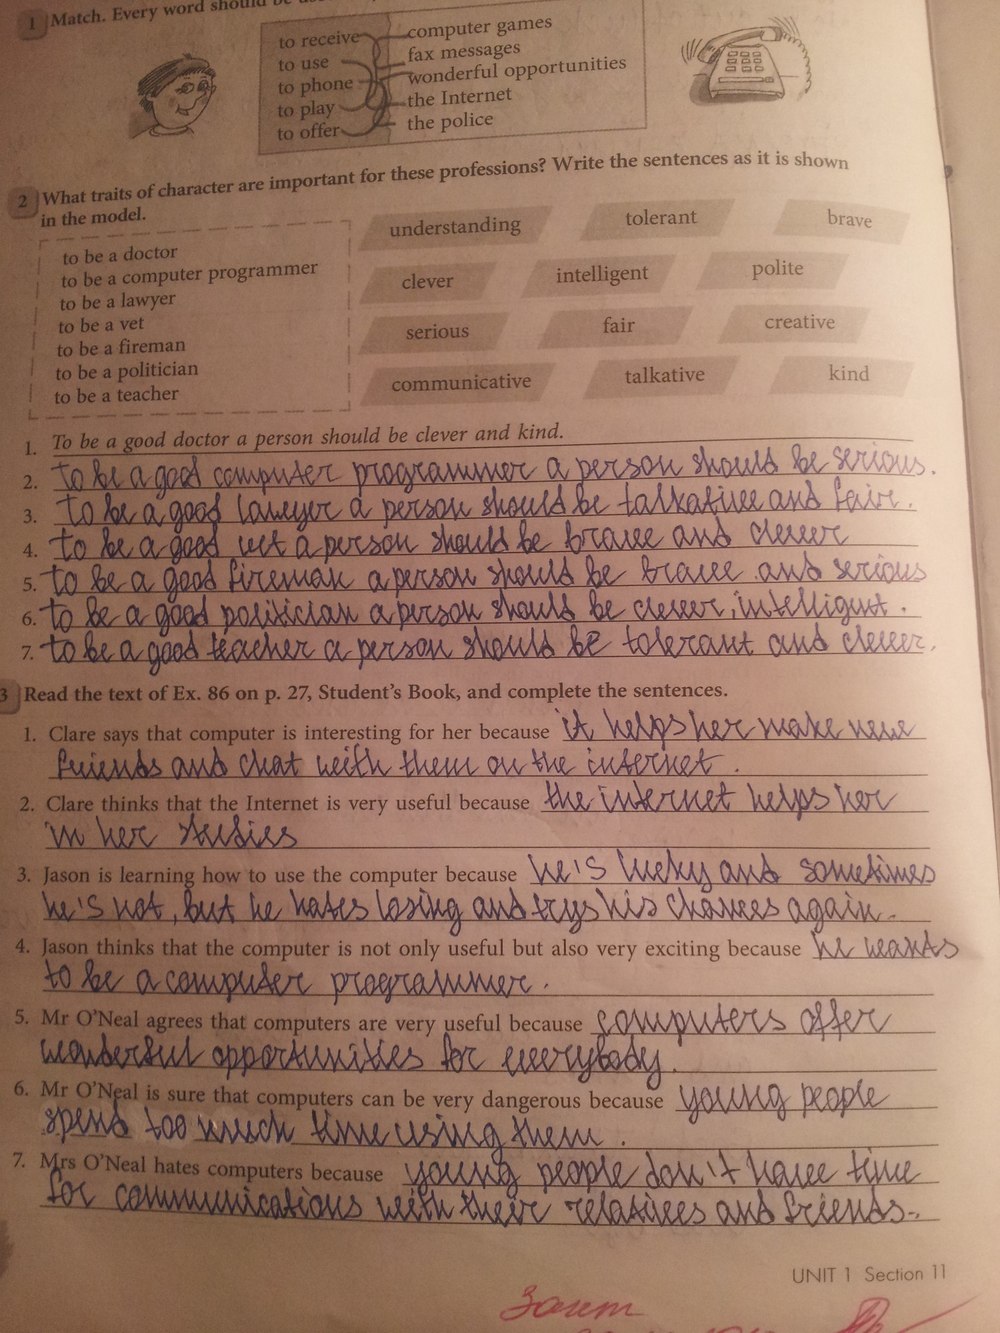 1 Match. Every word should be
to receive computer games
to use fax messages
to phone wonderful opportunities
to play the Internet
to offer the police
2 What traits of character are important for these professions? Write the sentences as it is shown
in the model.
to be a doctor
to be a computer programmer
to be a lawyer
to be a vet
to be a fireman
to be a politician
to be a teacher
understanding tolerant brave
clever intelligent polite
serious fair creative
communicative talkative kind
1. To be a good doctor a person should be clever and kind.
2. to be a good computer programmer a person should be serious.
3. to be a good lawyer a person should be talkative and fair.
4. to be a good vet a person should be brave and clever
5. to be a good fireman a person should be brave and serious
6. to be a good politician a person should be clever, intelligent.
7. to be a good teacher a person should be tolerant and clever.
3 Read the text of Ex. 86 on p. 27, Student's Book, and complete the sentences.
1. Clare says that computer is interesting for her because it helps her make new
friends and chat with them on the internet.
2. Clare thinks that the Internet is very useful because the internet helps her
in her studies
3. Jason is learning how to use the computer because he's lucky and sometimes
he's not, but he hates losing and trys his chances again.
4. Jason thinks that the computer is not only useful but also very exciting because he wants
to be a computer programmer.
5. Mr O'Neal agrees that computers are very useful because computers offer
wonderful opportunities for everybody.
6. Mr O'Neal is sure that computers can be very dangerous because young people
spend too much time using them.
7. Mrs O'Neal hates computers because young people don't have time
for communications with their relatives and friends.
UNIT 1 Section 11